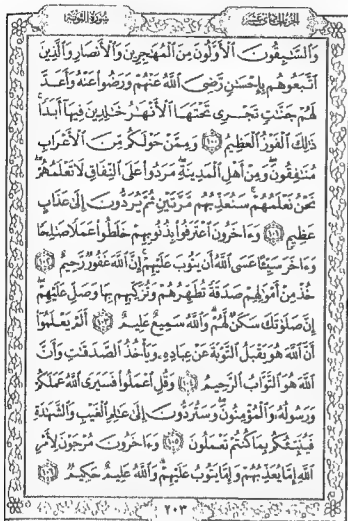 الجزء الحادي عشر سورة التوبة
وَٱلسَّٰبِقُونَ ٱلْأَوَّلُونَ مِنَ ٱلْمُهَٰجِرِينَ وَٱلْأَنصَارِ وَٱلَّذِينَ
ٱتَّبَعُوهُم بِإِحْسَٰنٍ رَّضِيَ ٱللَّهُ عَنْهُمْ وَرَضُوا۟ عَنْهُ وَأَعَدَّ
لَهُمْ جَنَّٰتٍ تَجْرِى تَحْتَهَا ٱلْأَنْهَٰرُ خَٰلِدِينَ فِيهَآ أَبَدًا ۚ
ذَٰلِكَ ٱلْفَوْزُ ٱلْعَظِيمُ ١٠٠ وَمِمَّنْ حَوْلَكُم مِّنَ ٱلْأَعْرَابِ
مُنَٰفِقُونَ ۖ وَمِنْ أَهْلِ ٱلْمَدِينَةِ ۖ مَرَدُوا۟ عَلَى ٱلنِّفَاقِ لَا تَعْلَمُهُمْ ۖ
نَحْنُ نَعْلَمُهُمْ ۚ سَنُعَذِّبُهُم مَّرَّتَيْنِ ثُمَّ يُرَدُّونَ إِلَىٰ عَذَابٍ
عَظِيمٍ ١٠١ وَءَاخَرُونَ ٱعْتَرَفُوا۟ بِذُنُوبِهِمْ خَلَطُوا۟ عَمَلًا صَٰلِحًا
وَءَاخَرَ سَيِّئًا عَسَى ٱللَّهُ أَن يَتُوبَ عَلَيْهِمْ ۚ إِنَّ ٱللَّهَ غَفُورٌ رَّحِيمٌ ١٠٢
خُذْ مِنْ أَمْوَٰلِهِمْ صَدَقَةً تُطَهِّرُهُمْ وَتُزَكِّيهِم بِهَا وَصَلِّ عَلَيْهِمْ ۖ
إِنَّ صَلَوٰتَكَ سَكَنٌ لَّهُمْ ۗ وَٱللَّهُ سَمِيعٌ عَلِيمٌ ١٠٣ أَلَمْ يَعْلَمُوٓا۟
أَنَّ ٱللَّهَ هُوَ يَقْبَلُ ٱلتَّوْبَةَ عَنْ عِبَادِهِۦ وَيَأْخُذُ ٱلصَّدَقَٰتِ وَأَنَّ
ٱللَّهَ هُوَ ٱلتَّوَّابُ ٱلرَّحِيمُ ١٠٤ وَقُلِ ٱعْمَلُوا۟ فَسَيَرَى ٱللَّهُ عَمَلَكُمْ
وَرَسُولُهُۥ وَٱلْمُؤْمِنُونَ ۖ وَسَتُرَدُّونَ إِلَىٰ عَٰلِمِ ٱلْغَيْبِ وَٱلشَّهَٰدَةِ
فَيُنَبِّئُكُم بِمَا كُنتُمْ تَعْمَلُونَ ١٠٥ وَءَاخَرُونَ مُرْجَوْنَ لِأَمْرِ
ٱللَّهِ إِمَّا يُعَذِّبُهُمْ وَإِمَّا يَتُوبُ عَلَيْهِمْ ۗ وَٱللَّهُ عَلِيمٌ حَكِيمٌ ١٠٦
٢٠٣